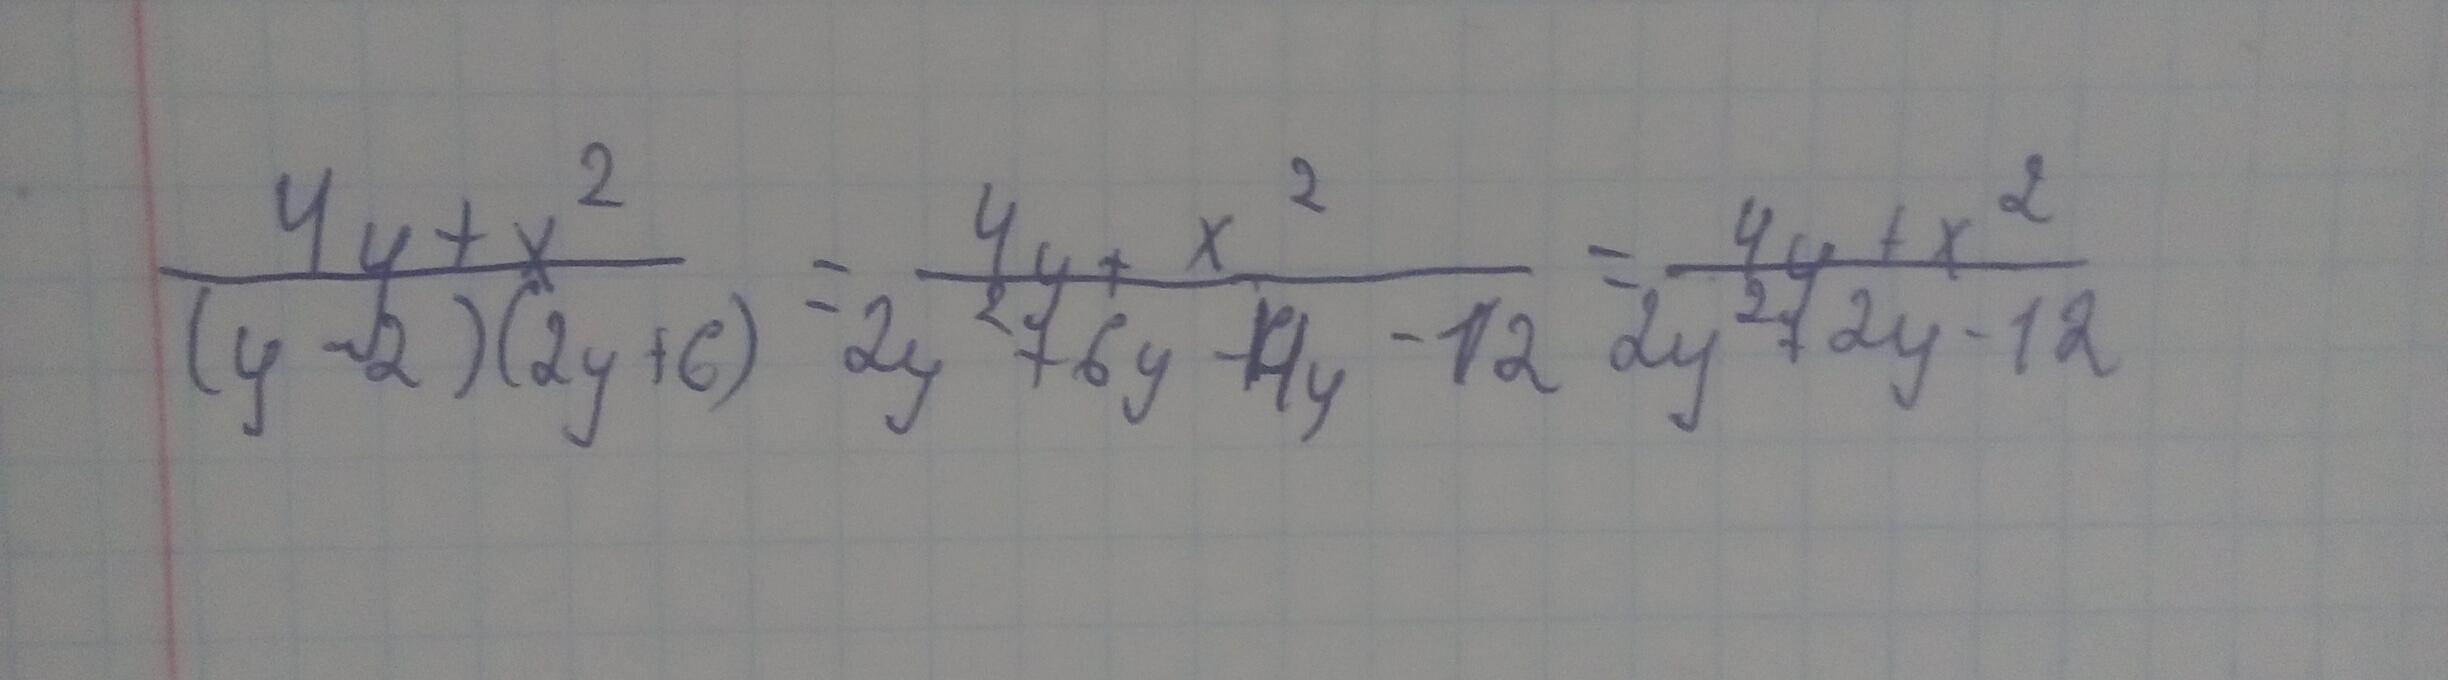 \frac{4y+x^2}{(y-2)(2y+6)} = \frac{4y+x^2}{2y^2+6y-4y-12} = \frac{4y+x^2}{2y^2+2y-12}